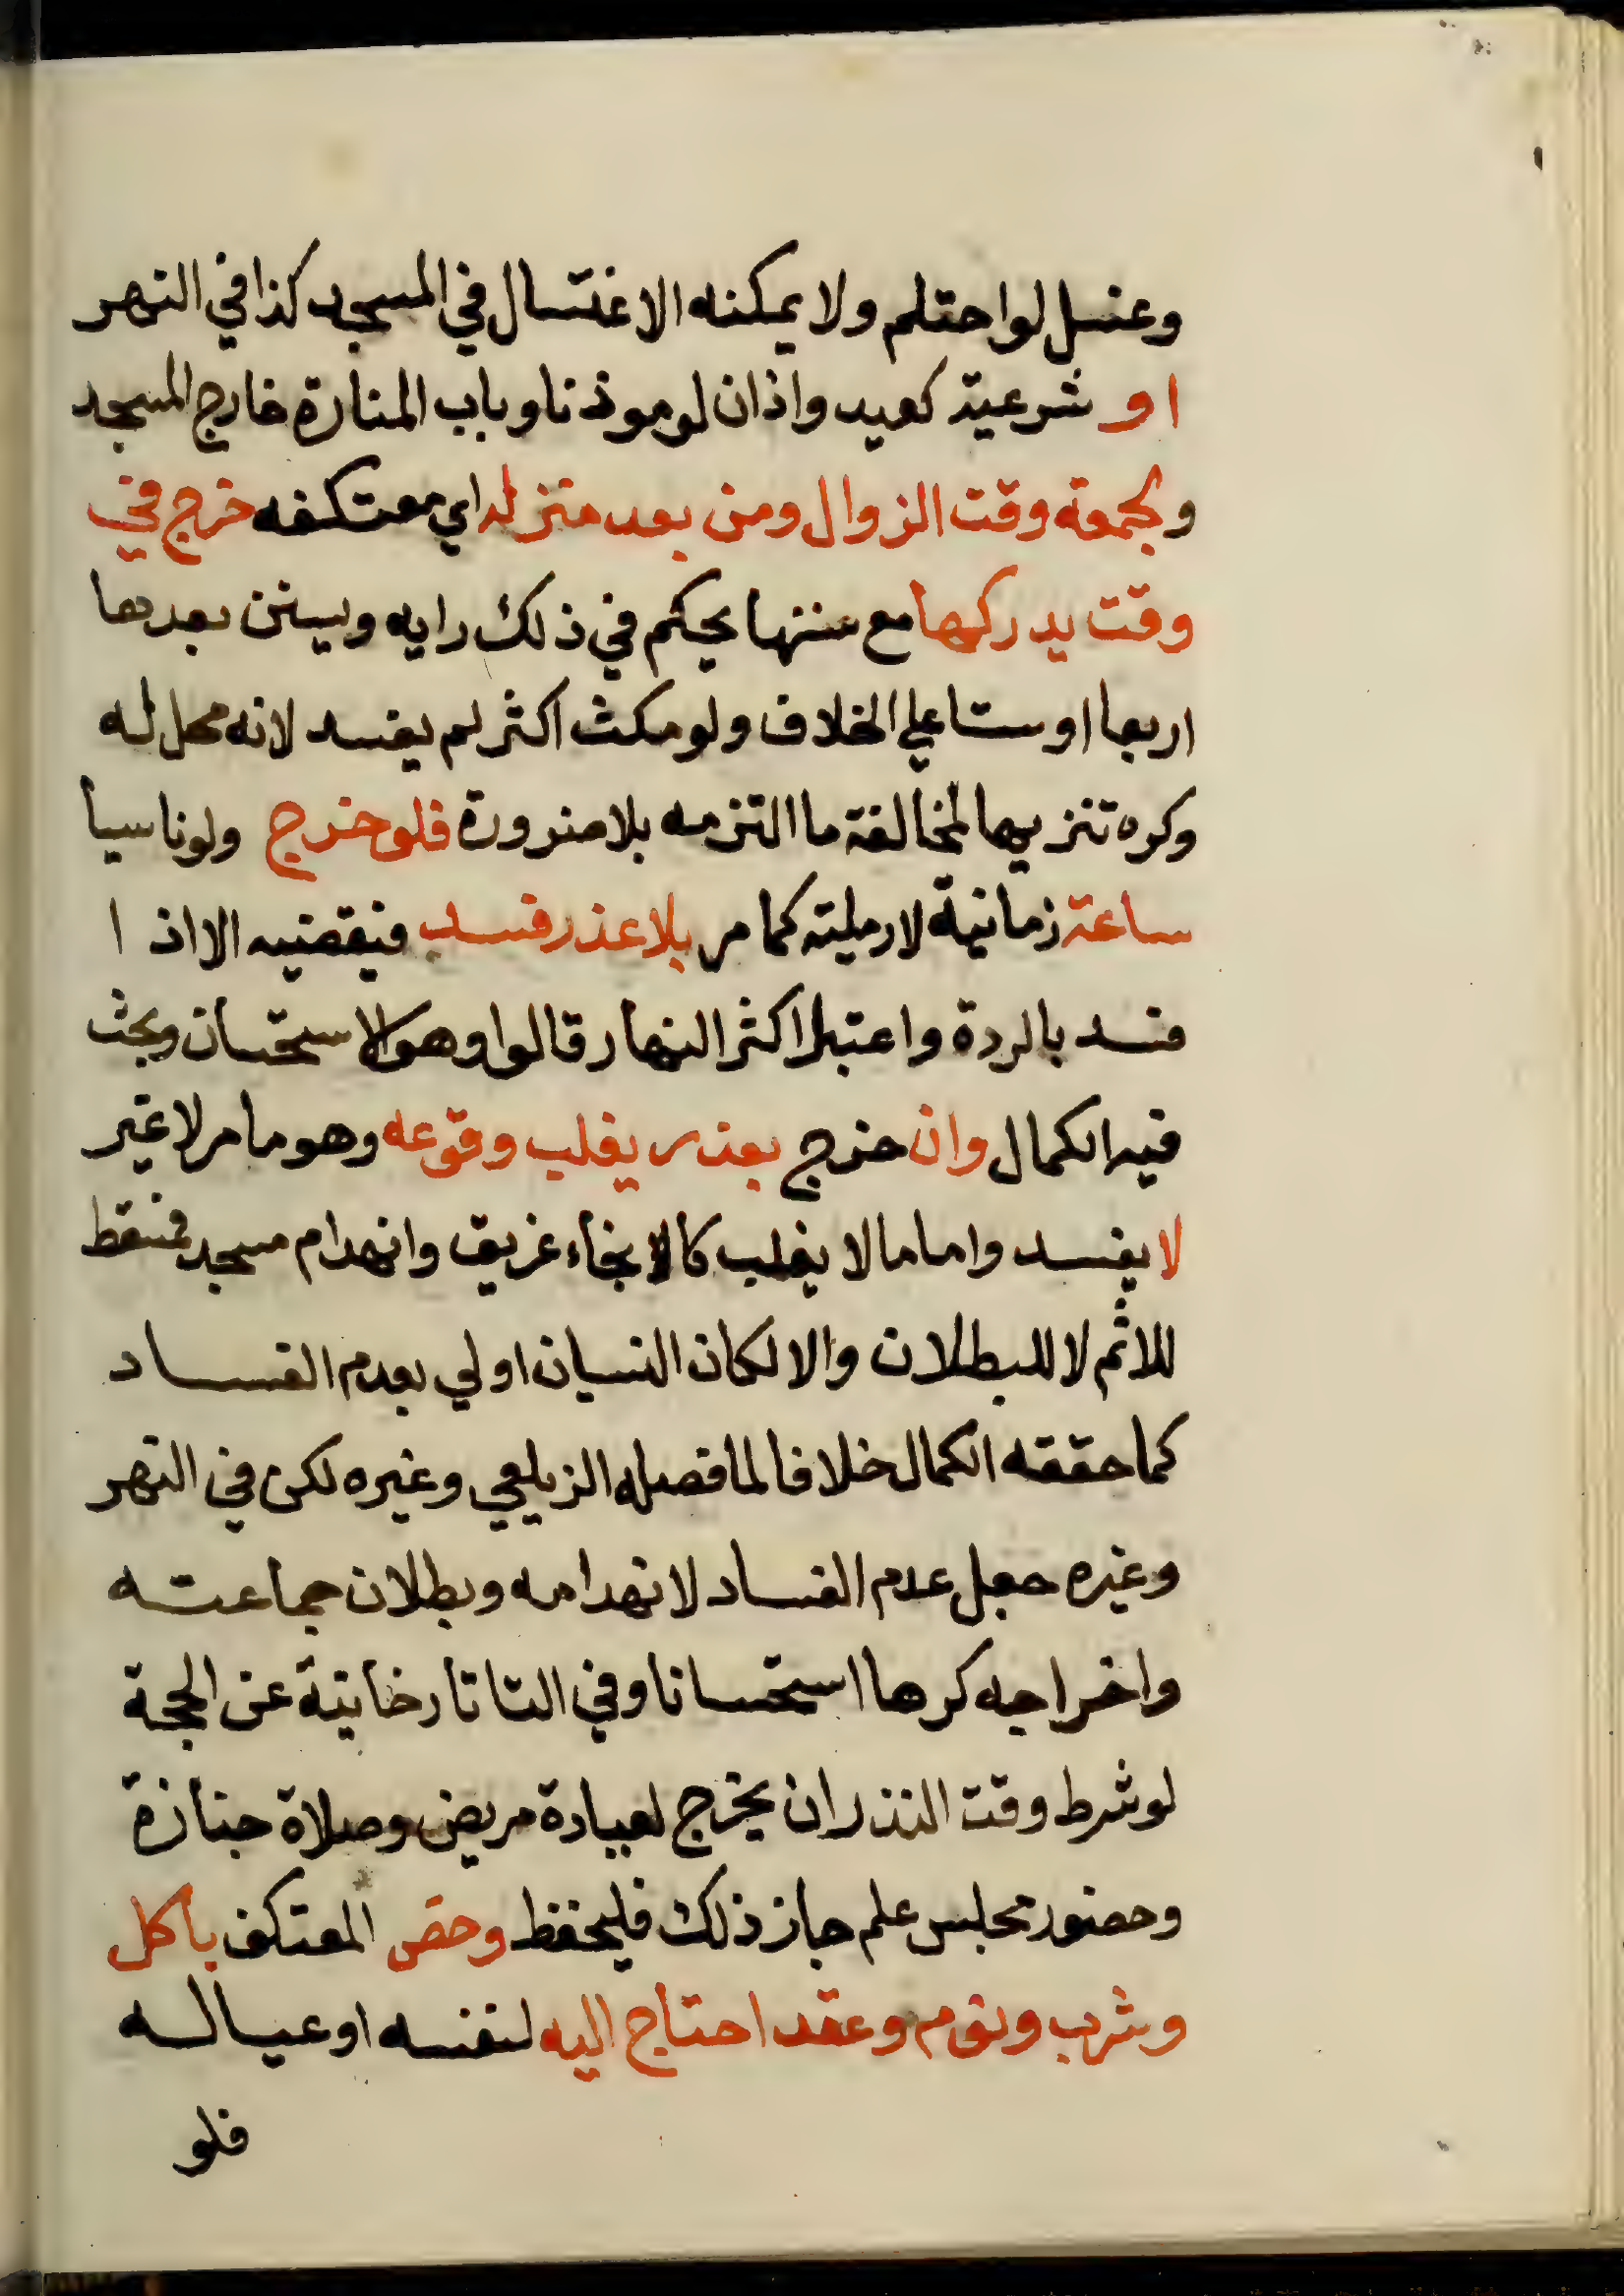 وغسل لو احتلم ولا يمكنه الاغتسال في المسجد كذا في النهر
او شرعية كعيد واذان لو موذنا وباب المنارة خارج المسجد
ولجمعة وقت الزوال ومن بعد منزله اي معتكفه خرج في
وقت يدركها مع سننها يحكم في ذلك رايه ويسنن بعدها
اربعا او ستا علي الخلاف ولو مكث اكثر لم يفسد لانه محل له
وكره تنزيها لمخالفة ما التزمه بلا ضرورة فلو خرج ولو ناسيا
ساعة زمانية لا رملية كما مر بلا عذر فسد فيقضيه الا اذا
فسد بالردة واعتبرا اكثر النهار قالوا وهو الاستحسان وبحث
فيه الكمال وان خرج بعذر يغلب وقوعه وهو ما مر لا غير
لا يفسد واما ما لا يغلب كالانجاء غريق وانهدام مسجد فمسقط
للاثم لا للبطلان والا لكان النسيان اولي بعدم الفساد
كما حققه الكمال خلافا لما فصله الزيلعي وغيره لكن في النهر
وغيره جعل عدم الفساد لانهدامه وبطلان جماعته
واخراجه كرها استحسانا وفي التاتارخانية عن الحجة
لو شرط وقت النذر ان يخرج لعيادة مريض وصلاة جنازة
وحضور مجلس علم جاز ذلك فليحفظ وخص المعتكف باكل
وشرب ونوم وعقد احتاج اليه لنفسه او عياله
فلو